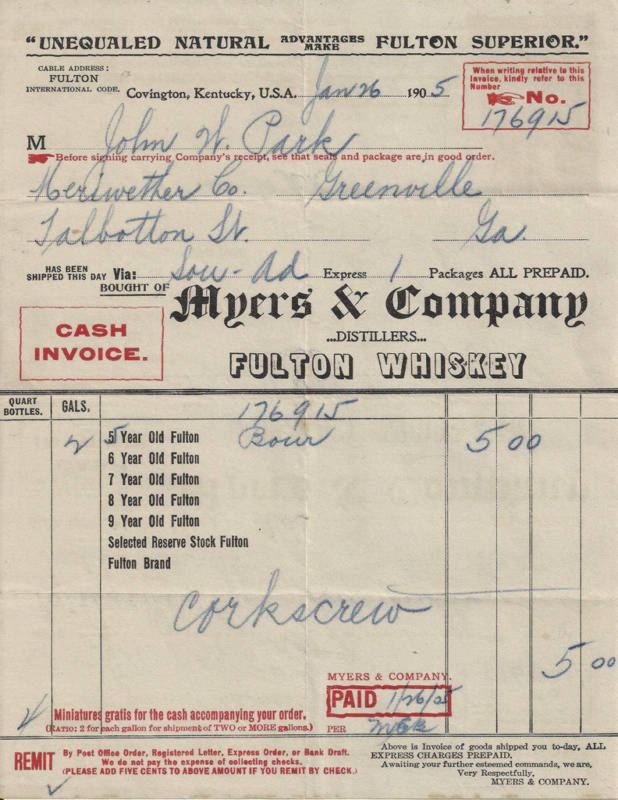 "UNEQUALED NATURAL ADVANTAGES MAKE FULTON SUPERIOR."
CABLE ADDRESS:
FULTON
INTERNATIONAL CODE.
Covington, Kentucky, U.S.A. Jan 26 1905
When writing relative to this
Invoice, kindly refer to this
Number
No.
176915
M John W. Park
Before signing carrying Company's receipt, see that seals and package are in good order.
Meriwether Co. Greenville
Talbotton St. Ga.
HAS BEEN
SHIPPED THIS DAY Via: Sou-Ad Express 1 Packages ALL PREPAID.
BOUGHT OF
Myers & Company
...DISTILLERS...
FULTON WHISKEY
CASH
INVOICE.
QUART
BOTTLES. GALS. 176915
2 5 Year Old Fulton Bour 5 00
6 Year Old Fulton
7 Year Old Fulton
8 Year Old Fulton
9 Year Old Fulton
Selected Reserve Stock Fulton
Fulton Brand
Corkscrew
5 00
MYERS & COMPANY.
PAID 1/26/05
PER
Miniatures gratis for the cash accompanying your order.
(RATIO: 2 for each gallon for shipment of TWO or MORE gallons.)
REMIT By Post Office Order, Registered Letter, Express Order, or Bank Draft.
We do not pay the expense of collecting checks.
(PLEASE ADD FIVE CENTS TO ABOVE AMOUNT IF YOU REMIT BY CHECK.)
Above is Invoice of goods shipped you to-day, ALL
EXPRESS CHARGES PREPAID.
Awaiting your further esteemed commands, we are,
Very Respectfully,
MYERS & COMPANY.